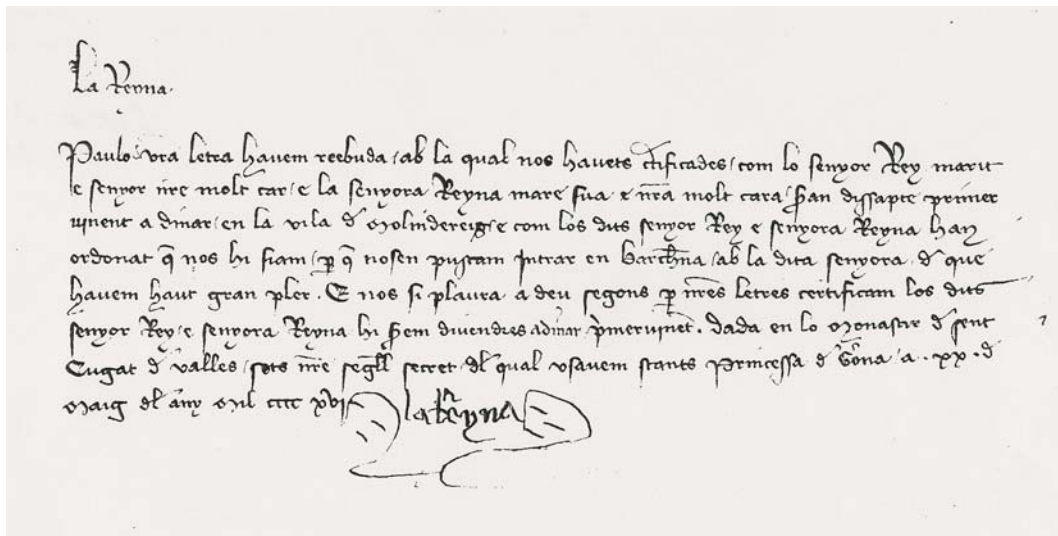 La Reyna.
Paulo vra letra havem reebuda / ab la qual nos havets ctificades / com lo senyor Rey marit
e senyor nre molt car / e la senyora Reyna mare sua e nra molt cara / seran dissapte primer
vinent a dinar / en la vila d Molindereig / e com los dits senyor Rey e senyora Reyna han
ordonat q nos hi siam / p q nosen puscam Intrar en barchna / ab la dita senyora . d que
havem haut gran pler . E nos si plaura a deu segons p nres letres certificam los dits
senyor Rey / e senyora Reyna hi serem divendres a dinar pmervinet . dada en lo Monastir d sent
Cugat d valles / sots nre segll secret . dl qual usavem stants Princessa d Gona / a . xx . d
Maig dl any Mil cccc xvi
la Reyna